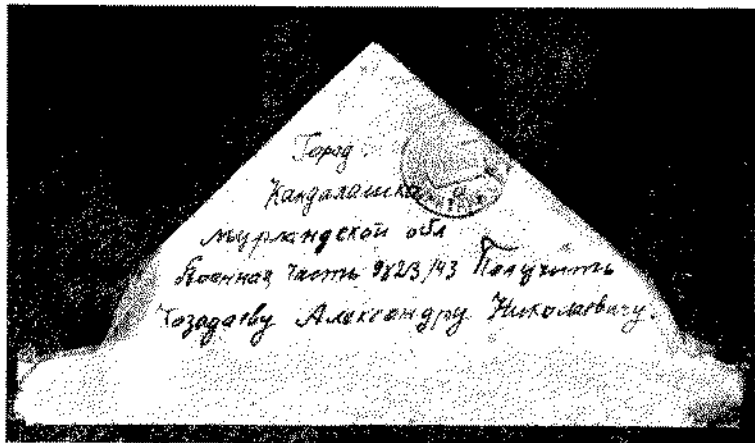 Город
Кандалашка
мурландской обл
Военная часть 9823/43 Получить
Козадаеву Александру Николаевичу.